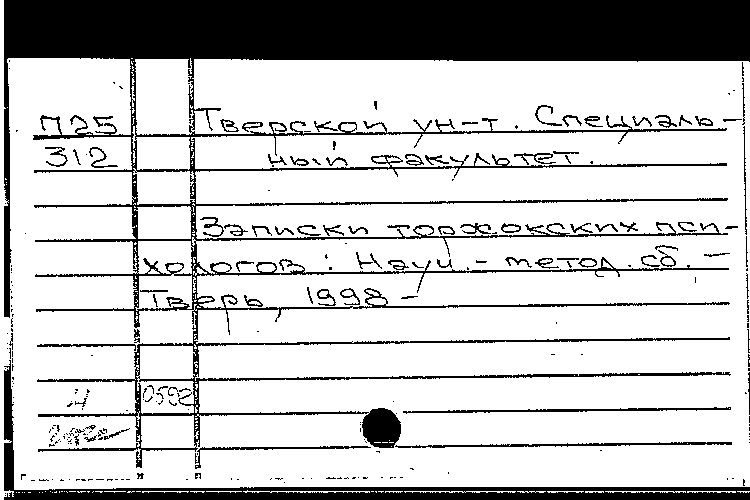 П25 Тверской ун-т. Специаль-
312 ный факультет.
Записки торжокских пси-
хологов: Науч.-метод. сб. -
Тверь, 1998 -